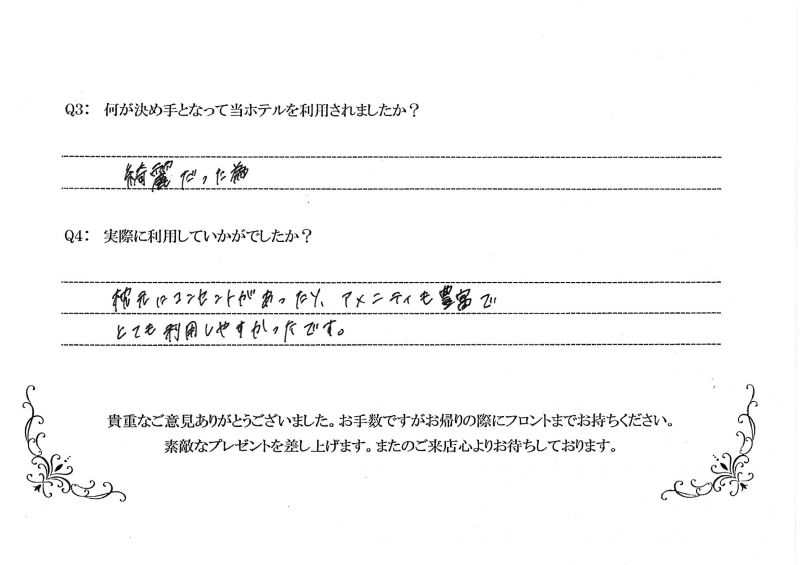 Q3: 何が決め手となって当ホテルを利用されましたか？
綺麗だった為
Q4: 実際に利用していかがでしたか？
枕元にコンセントがあったり、アメニティも豊富で
とても利用しやすかったです。
貴重なご意見ありがとうございました。お手数ですがお帰りの際にフロントまでお持ちください。
素敵なプレゼントを差し上げます。またのご来店心よりお待ちしております。